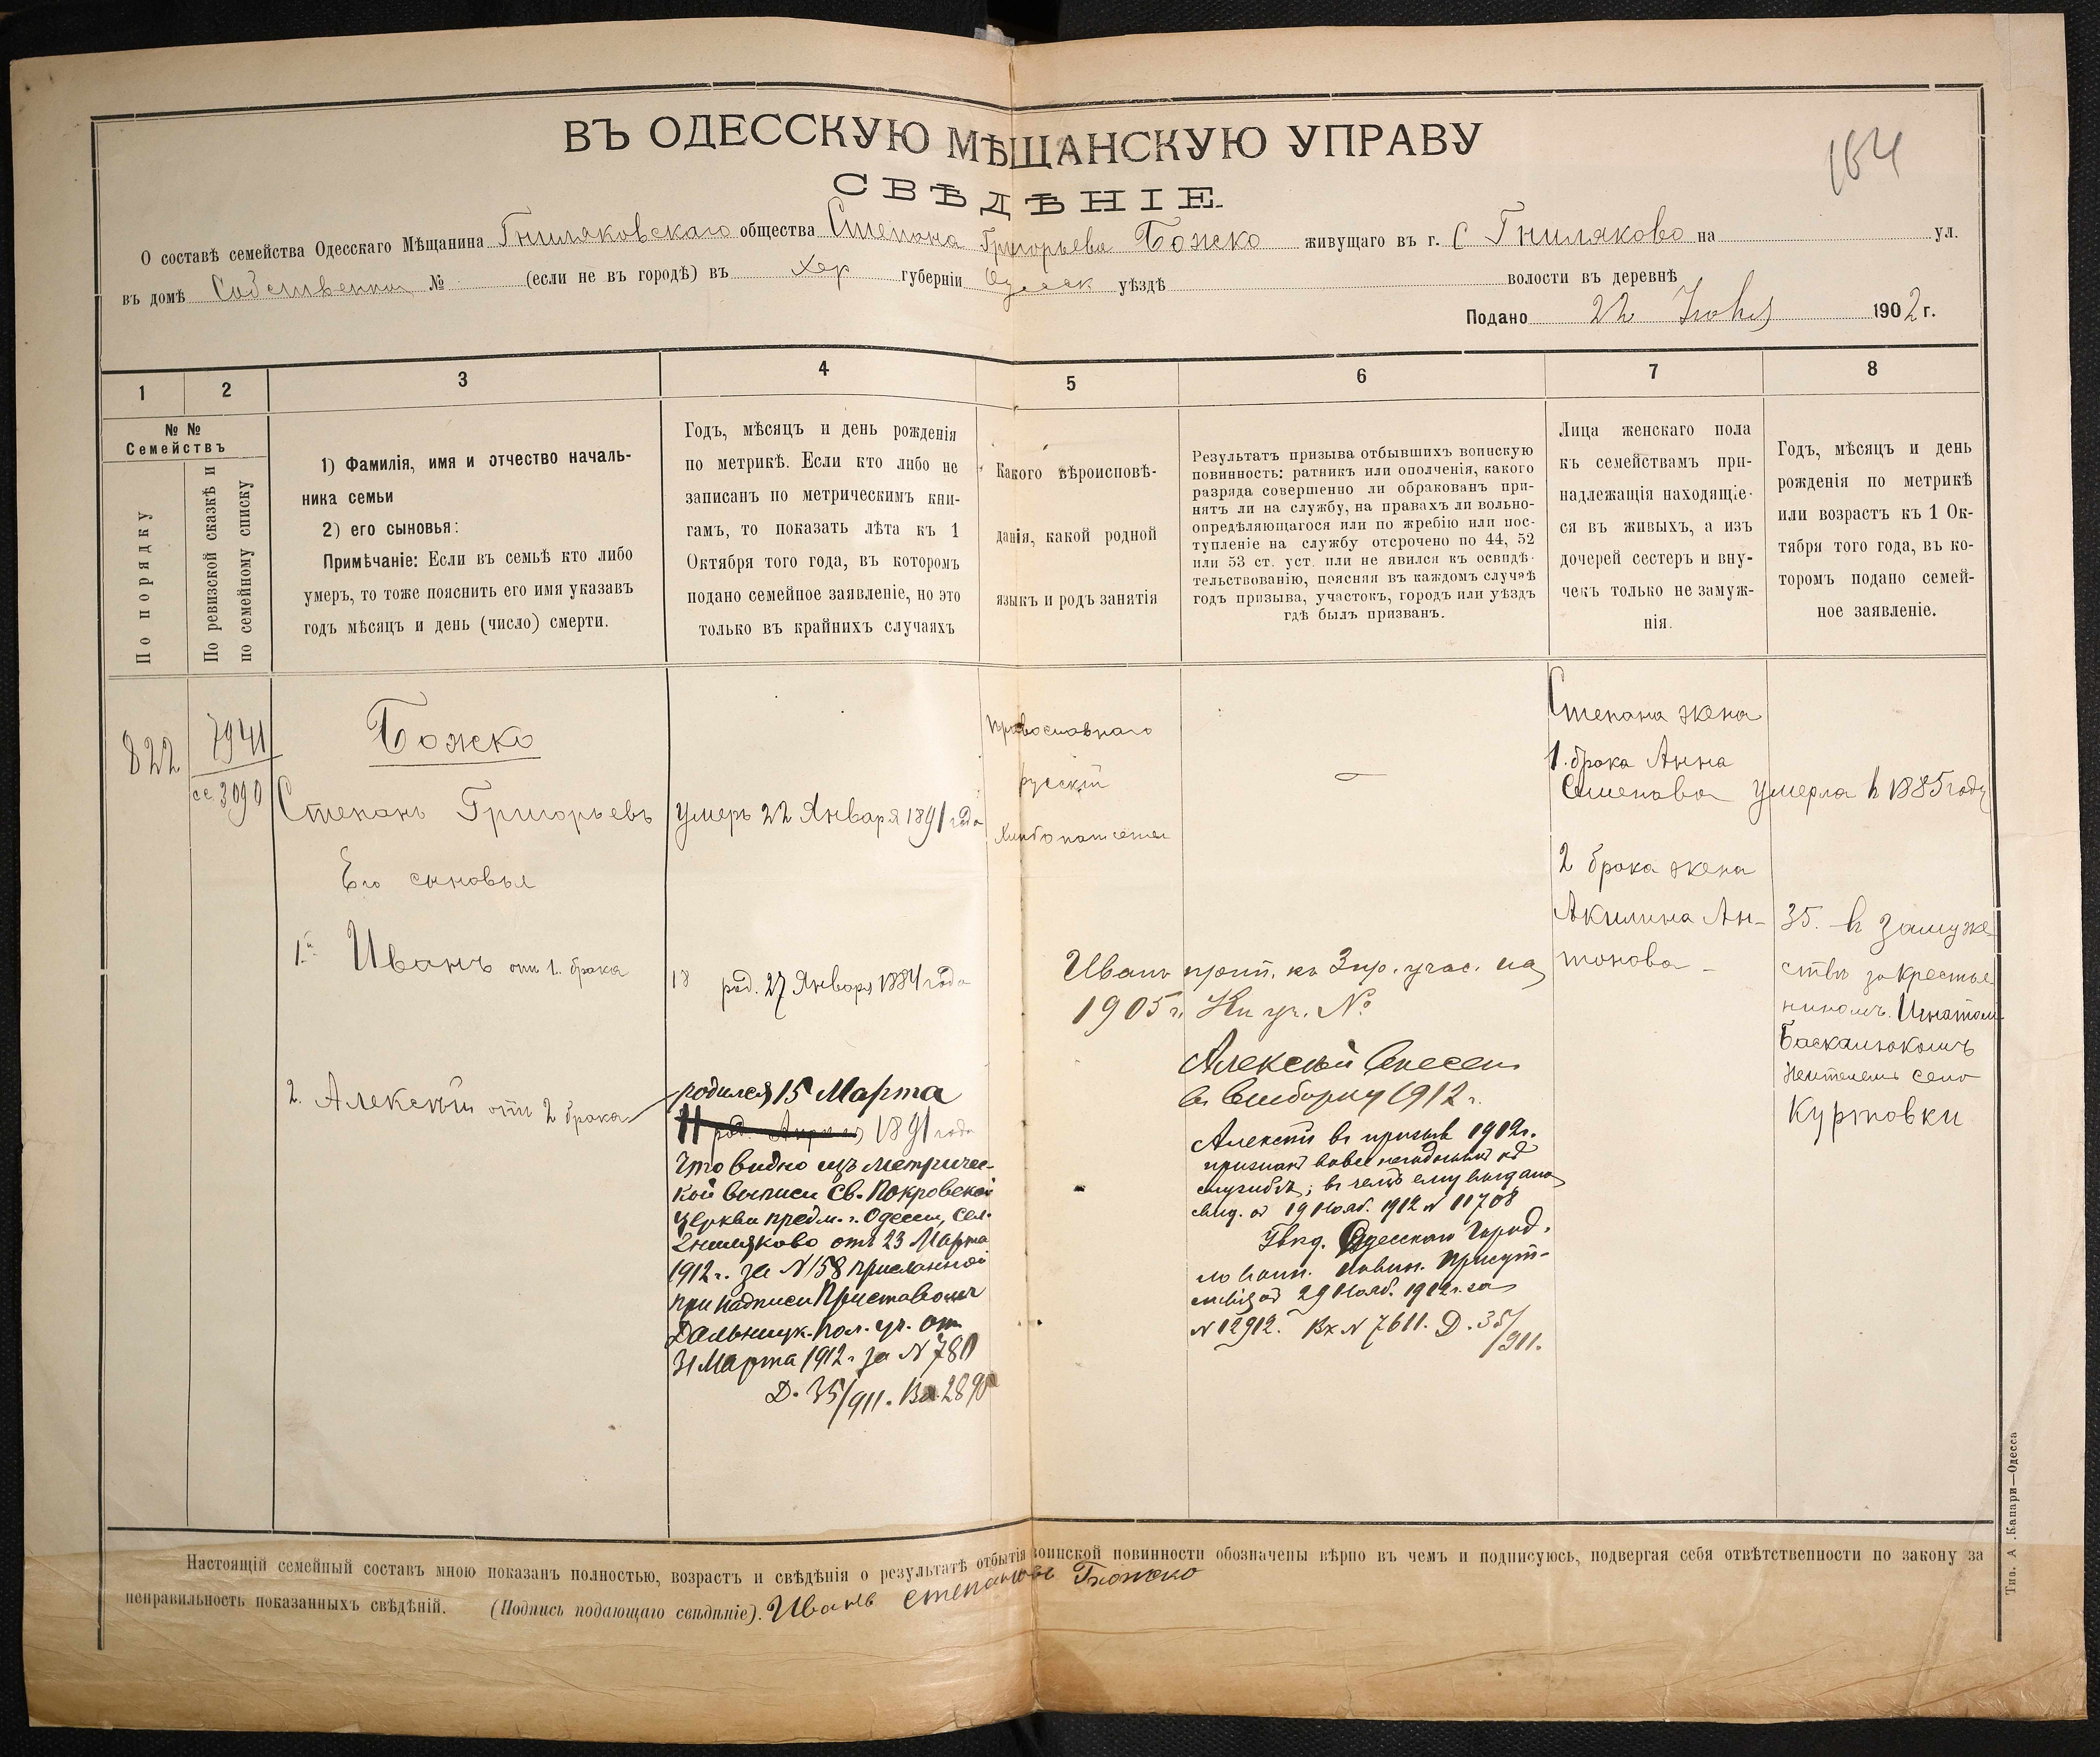 ВЪ ОДЕССКУЮ МѢЩАНСКУЮ УПРАВУ
164
СВѢДѢНІЕ
О составѣ семейства Одесскаго Мѣщанина Гниляковскаго общества Степана Григорьева Божко живущаго въ г. С Гниляково на ул.
въ домѣ Собственном № (если не въ городѣ) въ Хер губерніи Одесск уѣздѣ волости въ деревнѣ
Подано 22 1902 г.
1
2
3
4
5
6
7
8
№ №
Семействъ
По порядку
По ревизской сказкѣ и
по семейному списку
1) Фамилія, имя и отчество началь-
ника семьи
2) его сыновья:
Примѣчаніе: Если въ семьѣ кто либо
умеръ, то тоже пояснить его имя указавъ
годъ мѣсяцъ и день (число) смерти.
Годъ, мѣсяцъ и день рожденія
по метрикѣ. Если кто либо не
записанъ по метрическимъ кни-
гамъ, то показать лѣта къ 1
Октября того года, въ которомъ
подано семейное заявленіе, но это
только въ крайнихъ случаяхъ
Какого вѣроисповѣ-
данія, какой родной
языкъ и родъ занятія
Результатъ призыва отбывшихъ воинскую
повинность: ратникъ или ополченія, какого
разряда совершенно ли обракованъ при-
нятъ ли на службу, на правахъ ли вольно-
опредѣляющагося или по жребію или пос-
тупленіе на службу отсрочено по 44, 52
или 53 ст. уст. или не явился къ освидѣ-
тельствованію, поясняя въ каждомъ случаѣ
годъ призыва, участокъ, городъ или уѣздъ
гдѣ былъ призванъ.
Лица женскаго пола
къ семействамъ при-
надлежащія находящіе-
ся въ живыхъ, а изъ
дочерей сестеръ и вну-
чекъ только не замуж-
нія.
Годъ, мѣсяцъ и день
рожденія по метрикѣ
или возрастъ къ 1 Ок-
тября того года, въ ко-
торомъ подано семей-
ное заявленіе.
822
7941
сс. 3090
Божко
Степанъ Григорьевъ
Его сыновья
1й Иванъ отъ 1. брака
2. Алексѣй отъ 2 брака
умеръ 22 Января 1891 года
18 род. 27 Января 1884 года
родился 15 Марта
11 род. Апреля 1891 года
Что видно изъ метричес-
кой выписи Св. Покровской
церкви предм. г. Одессы, сел.
Гниляково отъ 23 Марта
1912 г. за № 158 присланной
при надписи Приставомъ
Дальницк. пол. уч. от
31 Марта 1912 г. за № 780
Д. 35/911. Вх. 2890
Православнаго
русскій
Хлѣбопашество
—
Иванъ прип. къ 3 пр. учас. на
1905 г. Кн уч. №
Алексѣй внесен
в выборку 1912 г.
Алексѣй въ призывъ 1912 г.
признанъ вовсе негоднымъ къ
службѣ; въ чемъ ему выдано
свид. от 19 Нояб. 1912 № 11708
Увѣд. Одесскаго Город.
по воин. повин. Присут-
ствія от 29 Нояб. 1912 г. за
№ 12912. Вх № 7611. Д. 35/911.
Степана жена
1. брака Анна
Семенова
2 брака жена
Акилина Ан-
тонова
умерла в 1885 году
35. въ замуже-
ствѣ за крестья-
ниномъ Игнатом
Баскалюкомъ
жителемъ село
Куртовки
Настоящій семейный составъ мною показанъ полностью, возрастъ и свѣдѣнія о результатѣ отбытія воинской повинности обозначены вѣрно въ чемъ и подписуюсь, подвергая себя отвѣтственности по закону за
неправильность показанныхъ свѣдѣній. (Подпись подающаго свѣдѣніе). Иванъ Степановъ Божко
Тип. А. Капари—Одесса